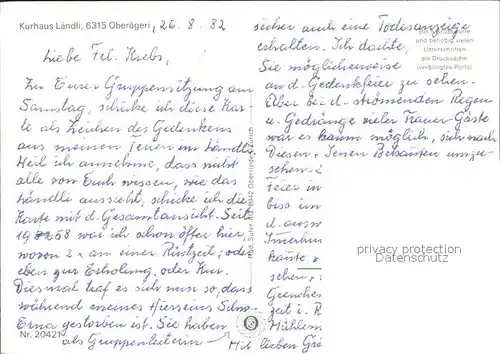 Kurhaus Ländli, 6315 Oberägeri, 26. 8. 82
Liebe Frl. Krebs,
Zu Eurer Gruppensitzung am
Samstag, schicke ich diese Kar-
te als Zeichen des Gedenkens
aus meinen Ferien im Ländli
Weil ich annehme, dass nicht
alle von Euch wissen, wie das
Ländli aussieht, schicke ich die
Karte mit d. Gesamtansicht. Seit
1958 war ich schon öfter hier,
wovon 2 x an einer Rüstzeit; oder
eben zur Erholung, oder Kur.
Diesmal traf es sich nun so, dass
während meines Hierseins Schw.
Erna gestorben ist. Sie haben
als Gruppenleiterin
Nr. 20421
sicher auch eine Todesanzeige
erhalten. Ich dachte,
Sie möglicherweise
an d. Gedenkfeier zu sehen.
Aber bei d. strömenden Regen
u. Gedränge vieler Trauer-Gäste
war es kaum möglich, sich nach
Diesen + Jenen Bekannten umzu-
sehen.
Feier in
biss im
d. ausw
Innerku
kannte
sehen,
zeit i. R
Mühlem
Mit lieben Grü
bis 5 Grussworte
und beliebig vielen
Unterschriften
als Drucksache
(verbilligtes Porto)
Photo Suter AG, 8942 Oberrieden-Zürich
privacy protection
Datenschutz